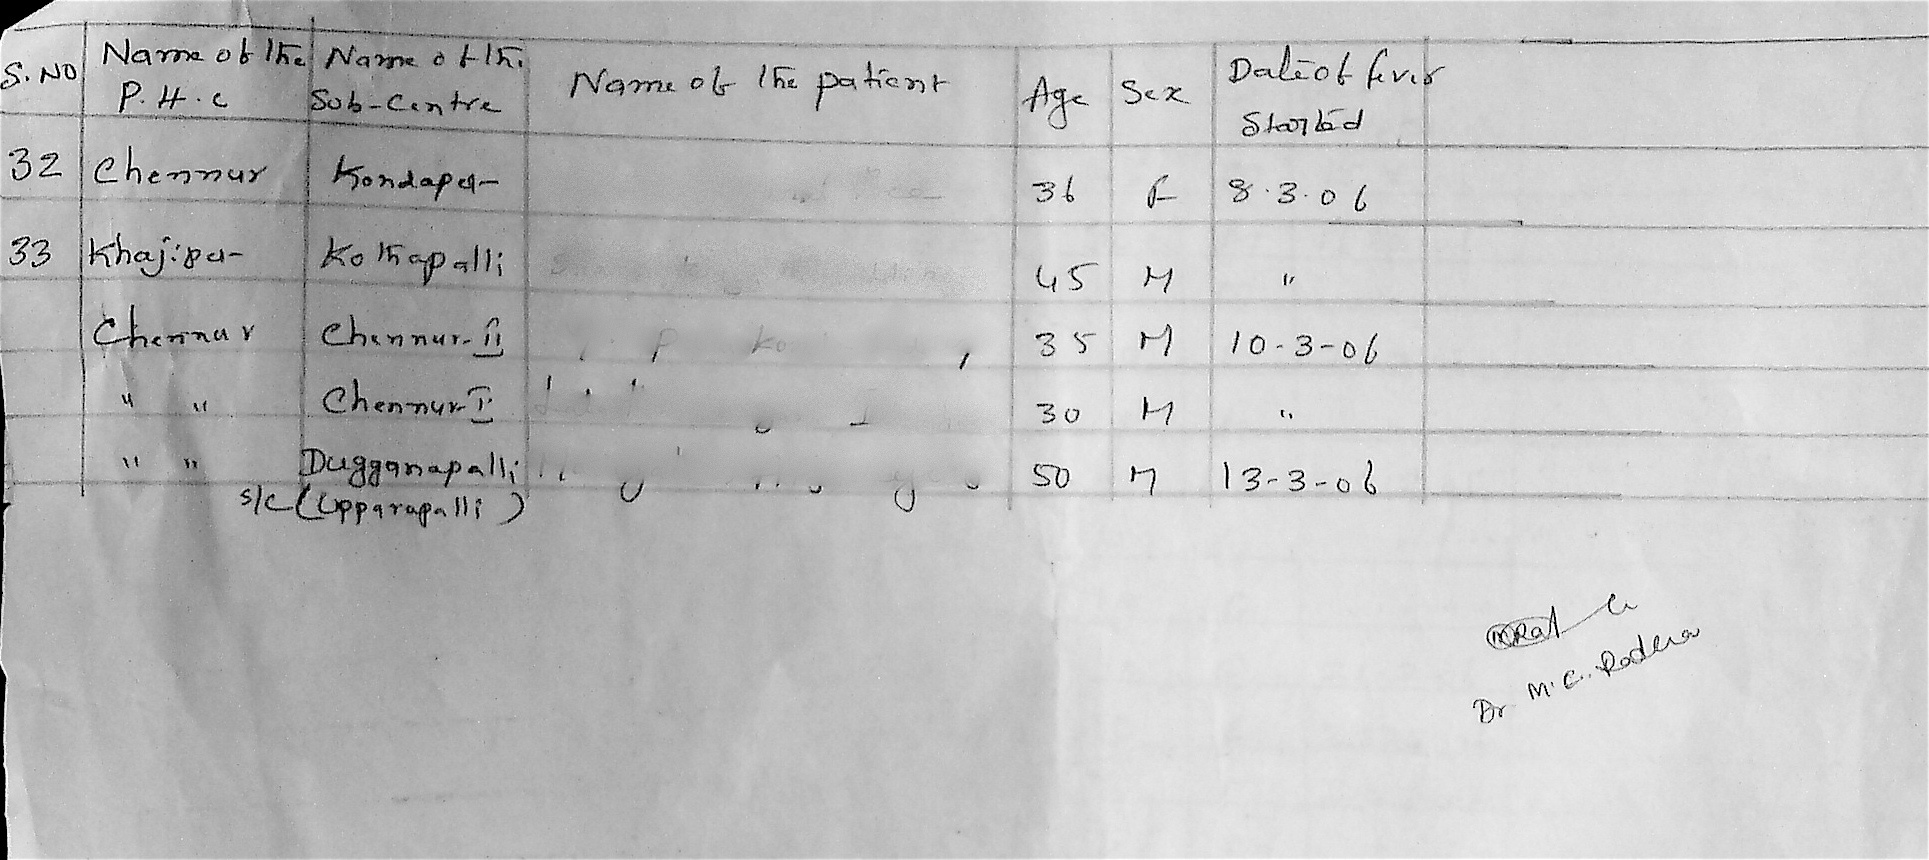 S.No Name of the P.H.C Name of the Sub-Centre Name of the patient Age Sex Date of fever Started
32 Chennur Kondaper 36 F 8.3.06
33 Khajiper Kothapalli 45 M "
Chennur Chennur-II 35 M 10-3-06
" " Chennur-I 30 M "
" " Dugganapalli 50 M 13-3-06
S/C (Upparapalli)
Dr M.C.